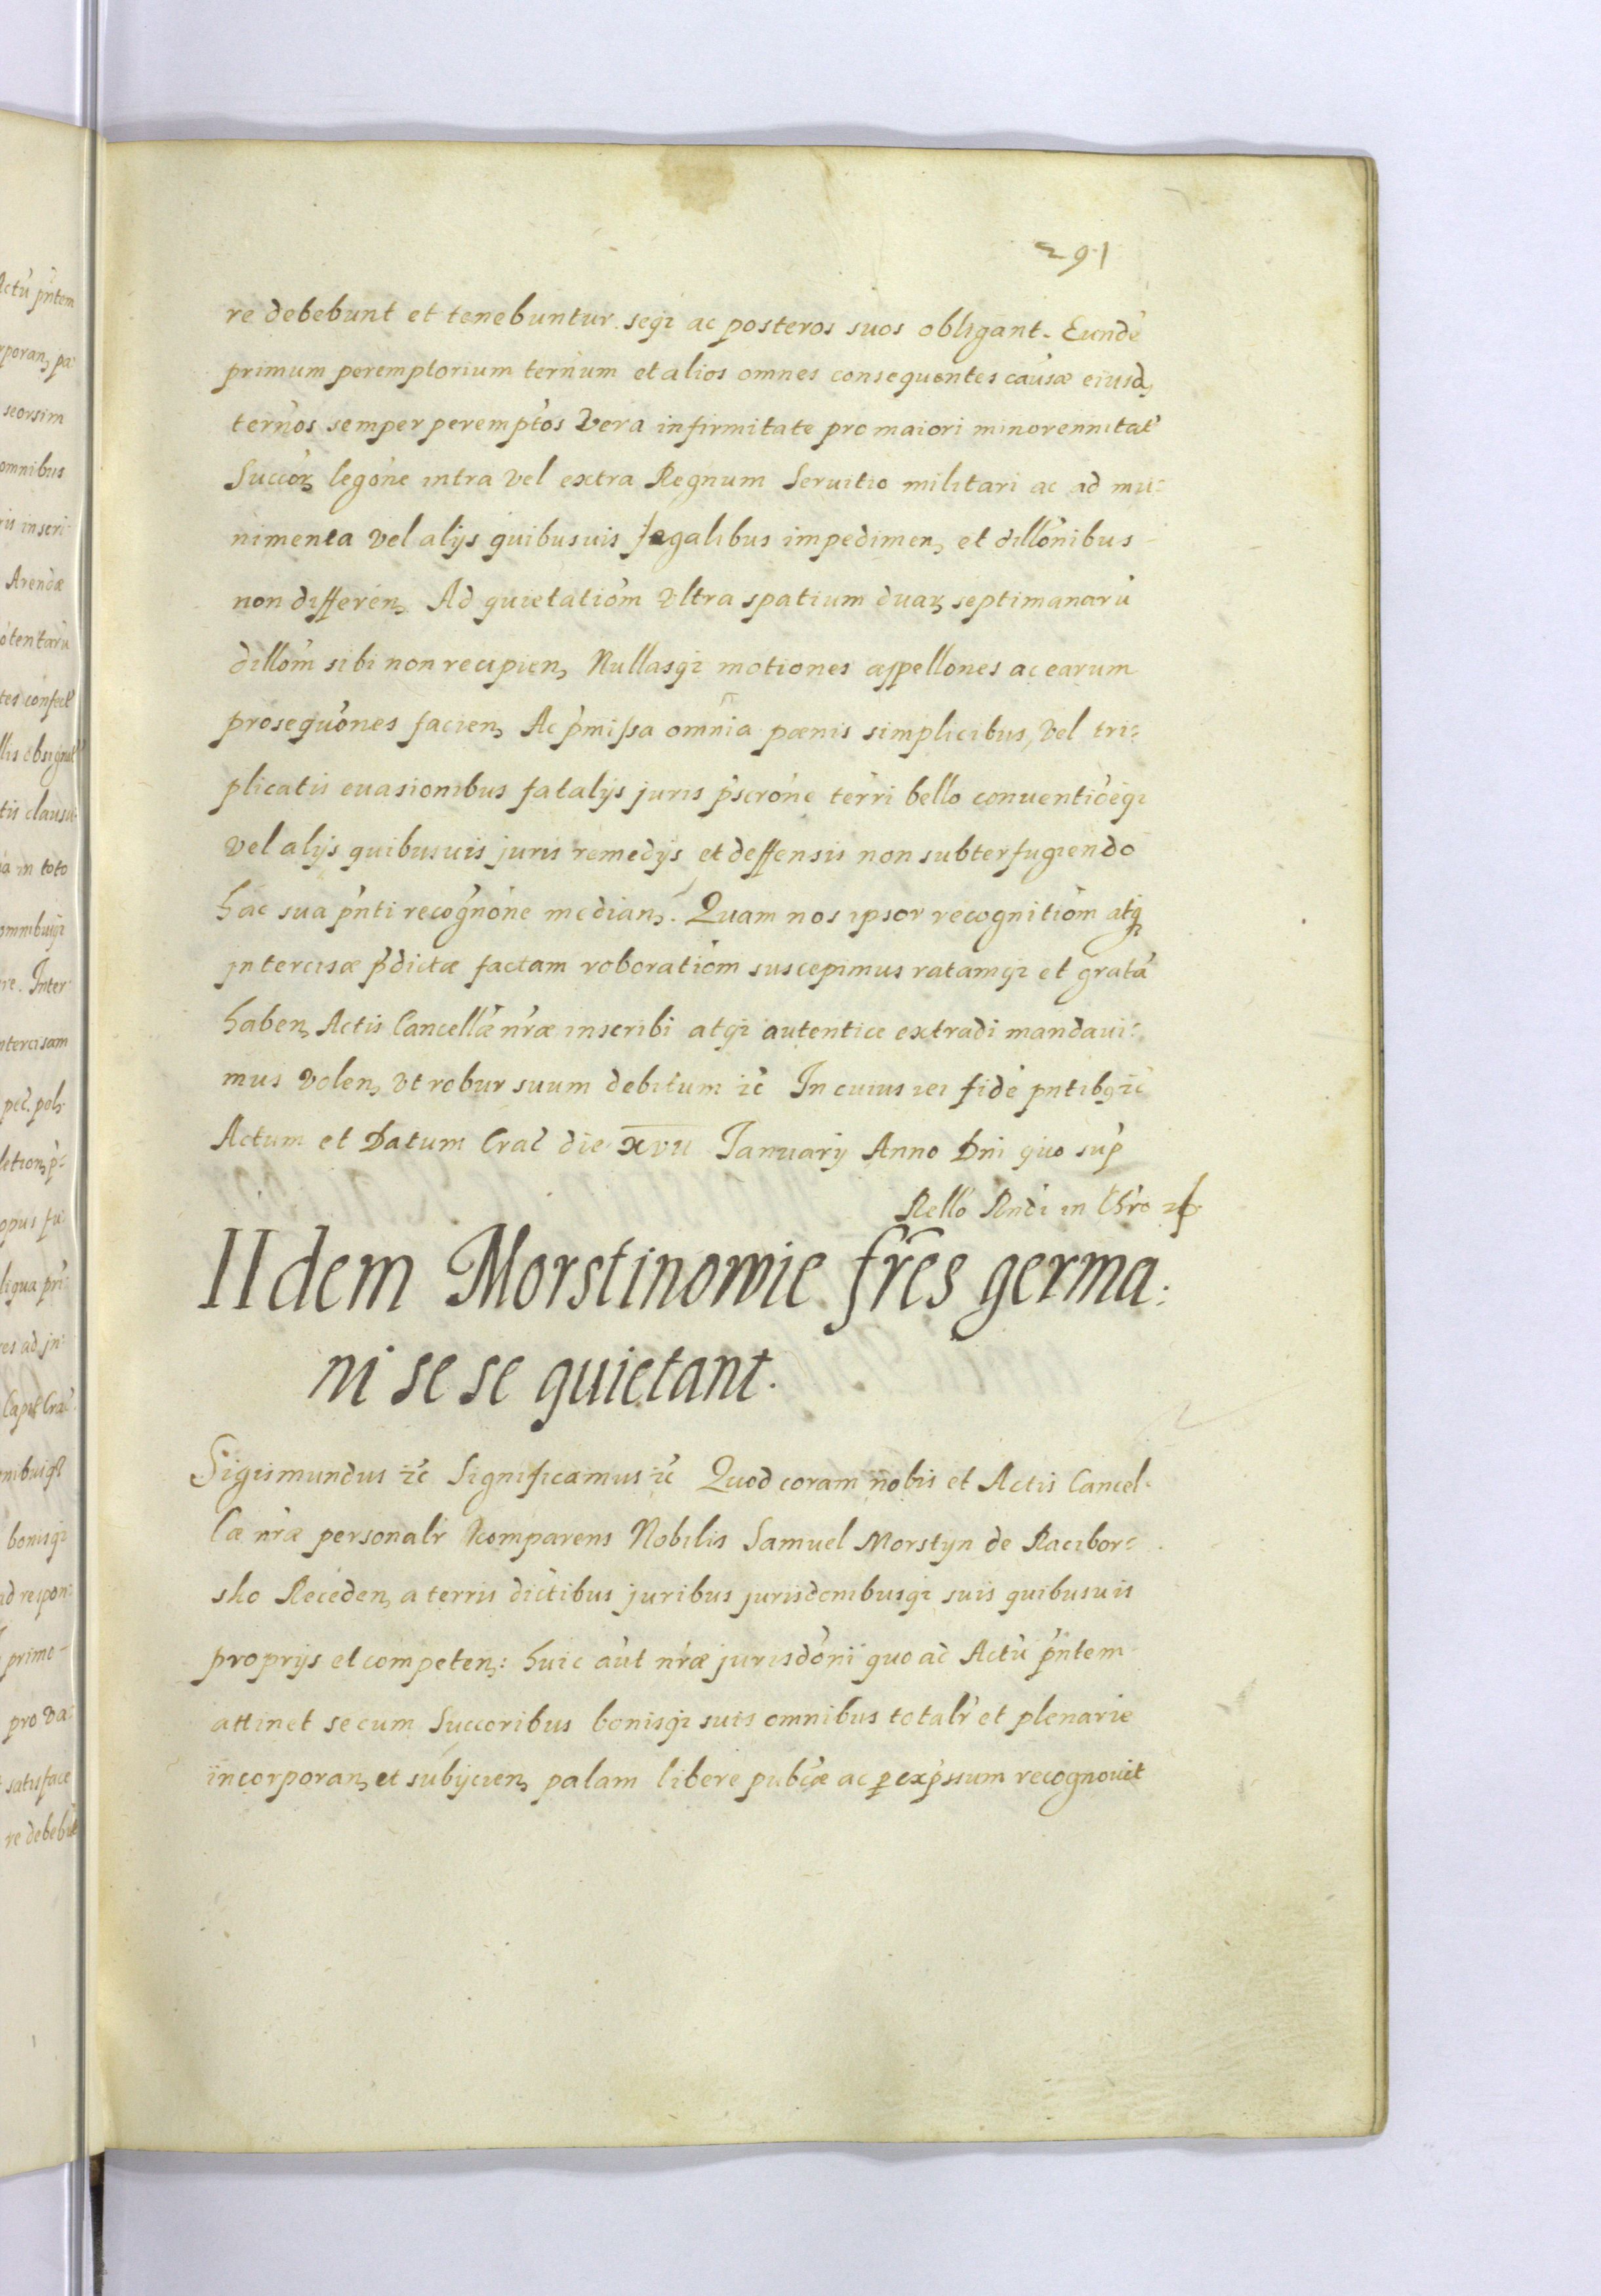 291
re debebunt et tenebuntur seqз ac posteros suos obligant. Eundē
primum peremptorium ternūm et alios omnes consequentes causæ eiusd,
terños semper peremptos vera infirmitate pro maiori minorennitat
Succoꝝ legōne intra vel extra Regnum Seruitio militari ac ad mu:
nimenta vel alijs quibusuis legalibus impedimen, et dillōnibus
non differen, Ad quietatiōm vltra spatium duaꝝ septimanarū
dillōm sibi non recipien, Nullasqз motiones appellones ac earum
prosequōnes facien, Ac pmissa omnia pænis simplicibus, vel tri:
plicatis euasionibus fatalijs juris pscrōne terri bello conuentiōeqз
vel alijs quibusuis juris remedijs et deffensis non subterfugiendo
hāc sua pnti recognōne median,. Quam nos ipsor recognitiōm atqз
intercisæ pdictæ factam roboratiōm suscepimus ratamqз et gratā
haben, Actis Cancellæ nræ inscribi atqз autentice extradi mandaui:
mus volen, vt robur suum debitum ꝛc In cuius rei fidē pntibꝫ ꝛc
Actum et Datum Crac die xvii Januarij Anno Dni quo sup
Rello Rndi in Chro ꝛc
IIdem Morstinowie fres germa:
ni se se quietant.
Sigismundus ꝛc Significamus ꝛc Quod coram nobis et Actis Cancel.
læ nræ personalr comparens Nobilis Samuel Morstyn de Racibor:
sko Receden, a terris dictibus juribus jurisdonibusqз suis quibusuis
proprijs et competen,: huic aut nræ jurisdōni quo ad Actū pntem
attinet se cum Succoribus bonisqз suis omnibus totalr et plenarie
incorporan, et subijcien, palam libere pubcæ ac ꝑ expssum recognouit